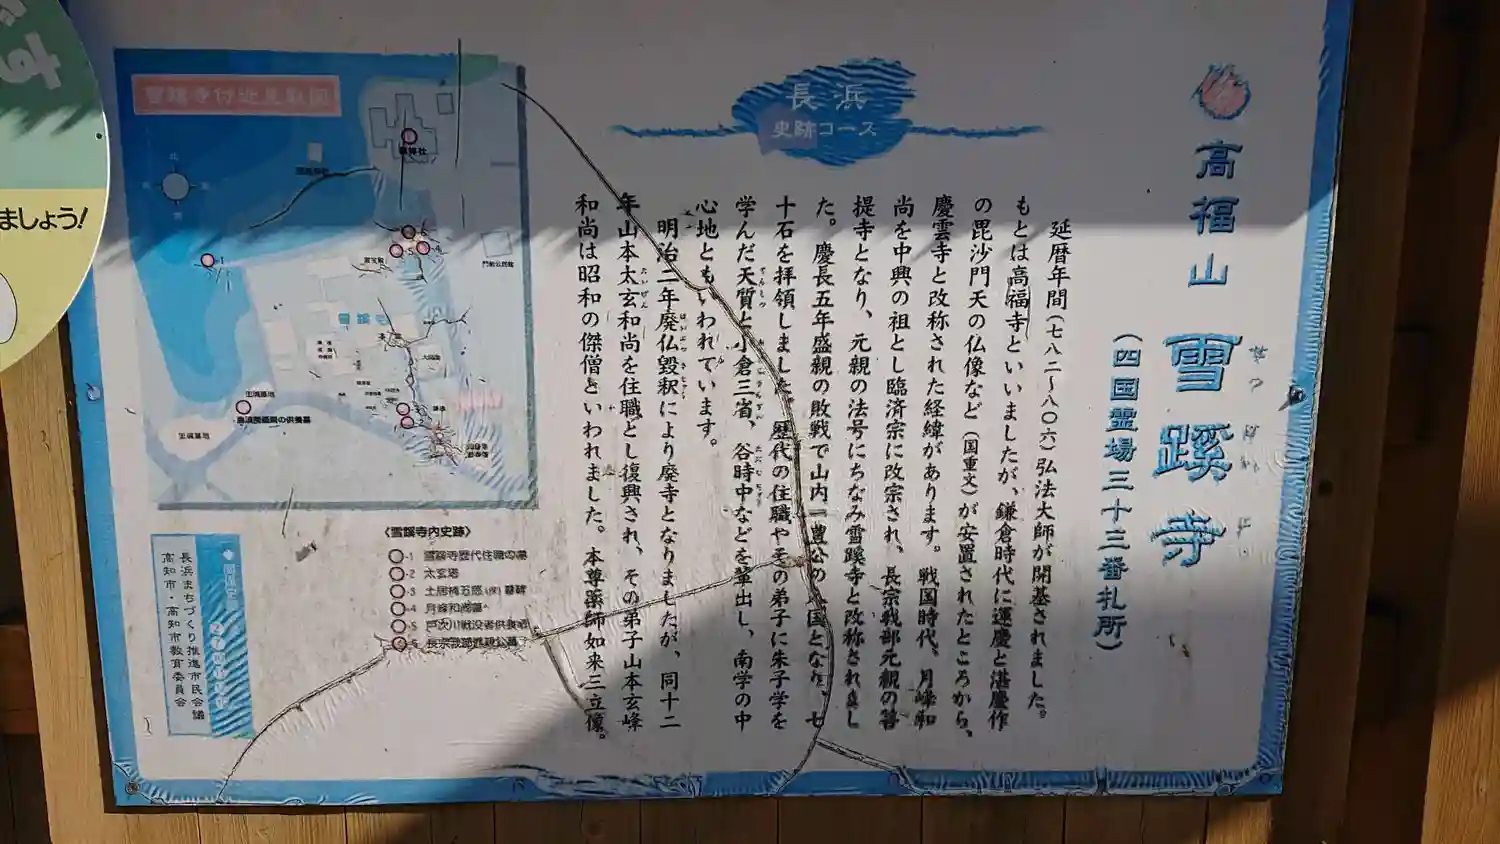 高福山 雪蹊寺
(四国霊場三十三番札所)
長浜
史跡コース
延暦年間(七八二〜八〇六)弘法大師が開基されました。
もとは高福寺といいましたが、鎌倉時代に運慶と湛慶作
の毘沙門天の仏像など(国重文)が安置されたところから、
慶雲寺と改称された経緯があります。戦国時代、月峰和
尚を中興の祖とし臨済宗に改宗され、長宗我部元親の菩
提寺となり、元親の法号にちなみ雪蹊寺と改称されまし
た。慶長五年盛親の敗戦で山内一豊公の入国となり、七
十石を拝領しました。歴代の住職やその弟子に朱子学を
学んだ天質と小倉三省、谷時中などを輩出し、南学の中
心地ともいわれています。
明治二年廃仏毀釈により廃寺となりましたが、同十二
年山本太玄和尚を住職とし復興され、その弟子山本玄峰
和尚は昭和の傑僧といわれました。本尊薬師如来三立像。
雪蹊寺付近見取図
北
秦神社
雪蹊寺
〈雪蹊寺内史跡〉
-1 雪蹊寺歴代住職の墓
-2 太玄塔
-4 月峰和尚墓
-5 戸次川戦没者供養塔
長浜まちづくり推進市民会議
高知市・高知市教育委員会
ましょう!
です